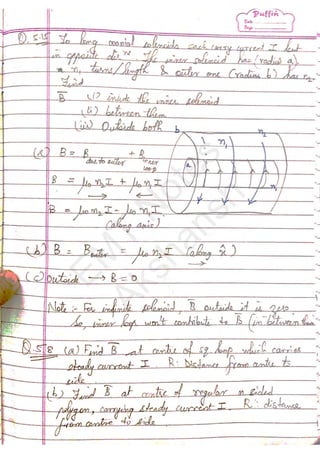 Puffin
Date
Page
Q.5.15 To long coaxial solenoids each carry current I but
in opposite dirⁿ. The inner solenoid has (radius a)
n₁ turns/length & outer one (radius b) has n₂.
Find
B̅ (i) inside the inner solenoid
(ii) between them
(iii) Outside both
b n₁ n₂
a
(a) B = B + B
due to outer inner loop
B = μ₀n₂I + μ₀n₁I
→ ←
B = μ₀n₂I - μ₀n₁I
(along axis)
(b) B = Bouter = μ₀n₂I (along x̂)
→
(c) Outside → B = 0
Note :- For infinite solenoid, B̅ outside it is zero
So, inner loop won't contribute to B̅ (in between them
Q.5.8 (a) Find B̅ at centre of sq. loop which carries
steady current I. R: Distance from centre to
side
(b) Find B̅ at centre of regular n sided
polygon, carrying steady current I. R: distance
from centre to side